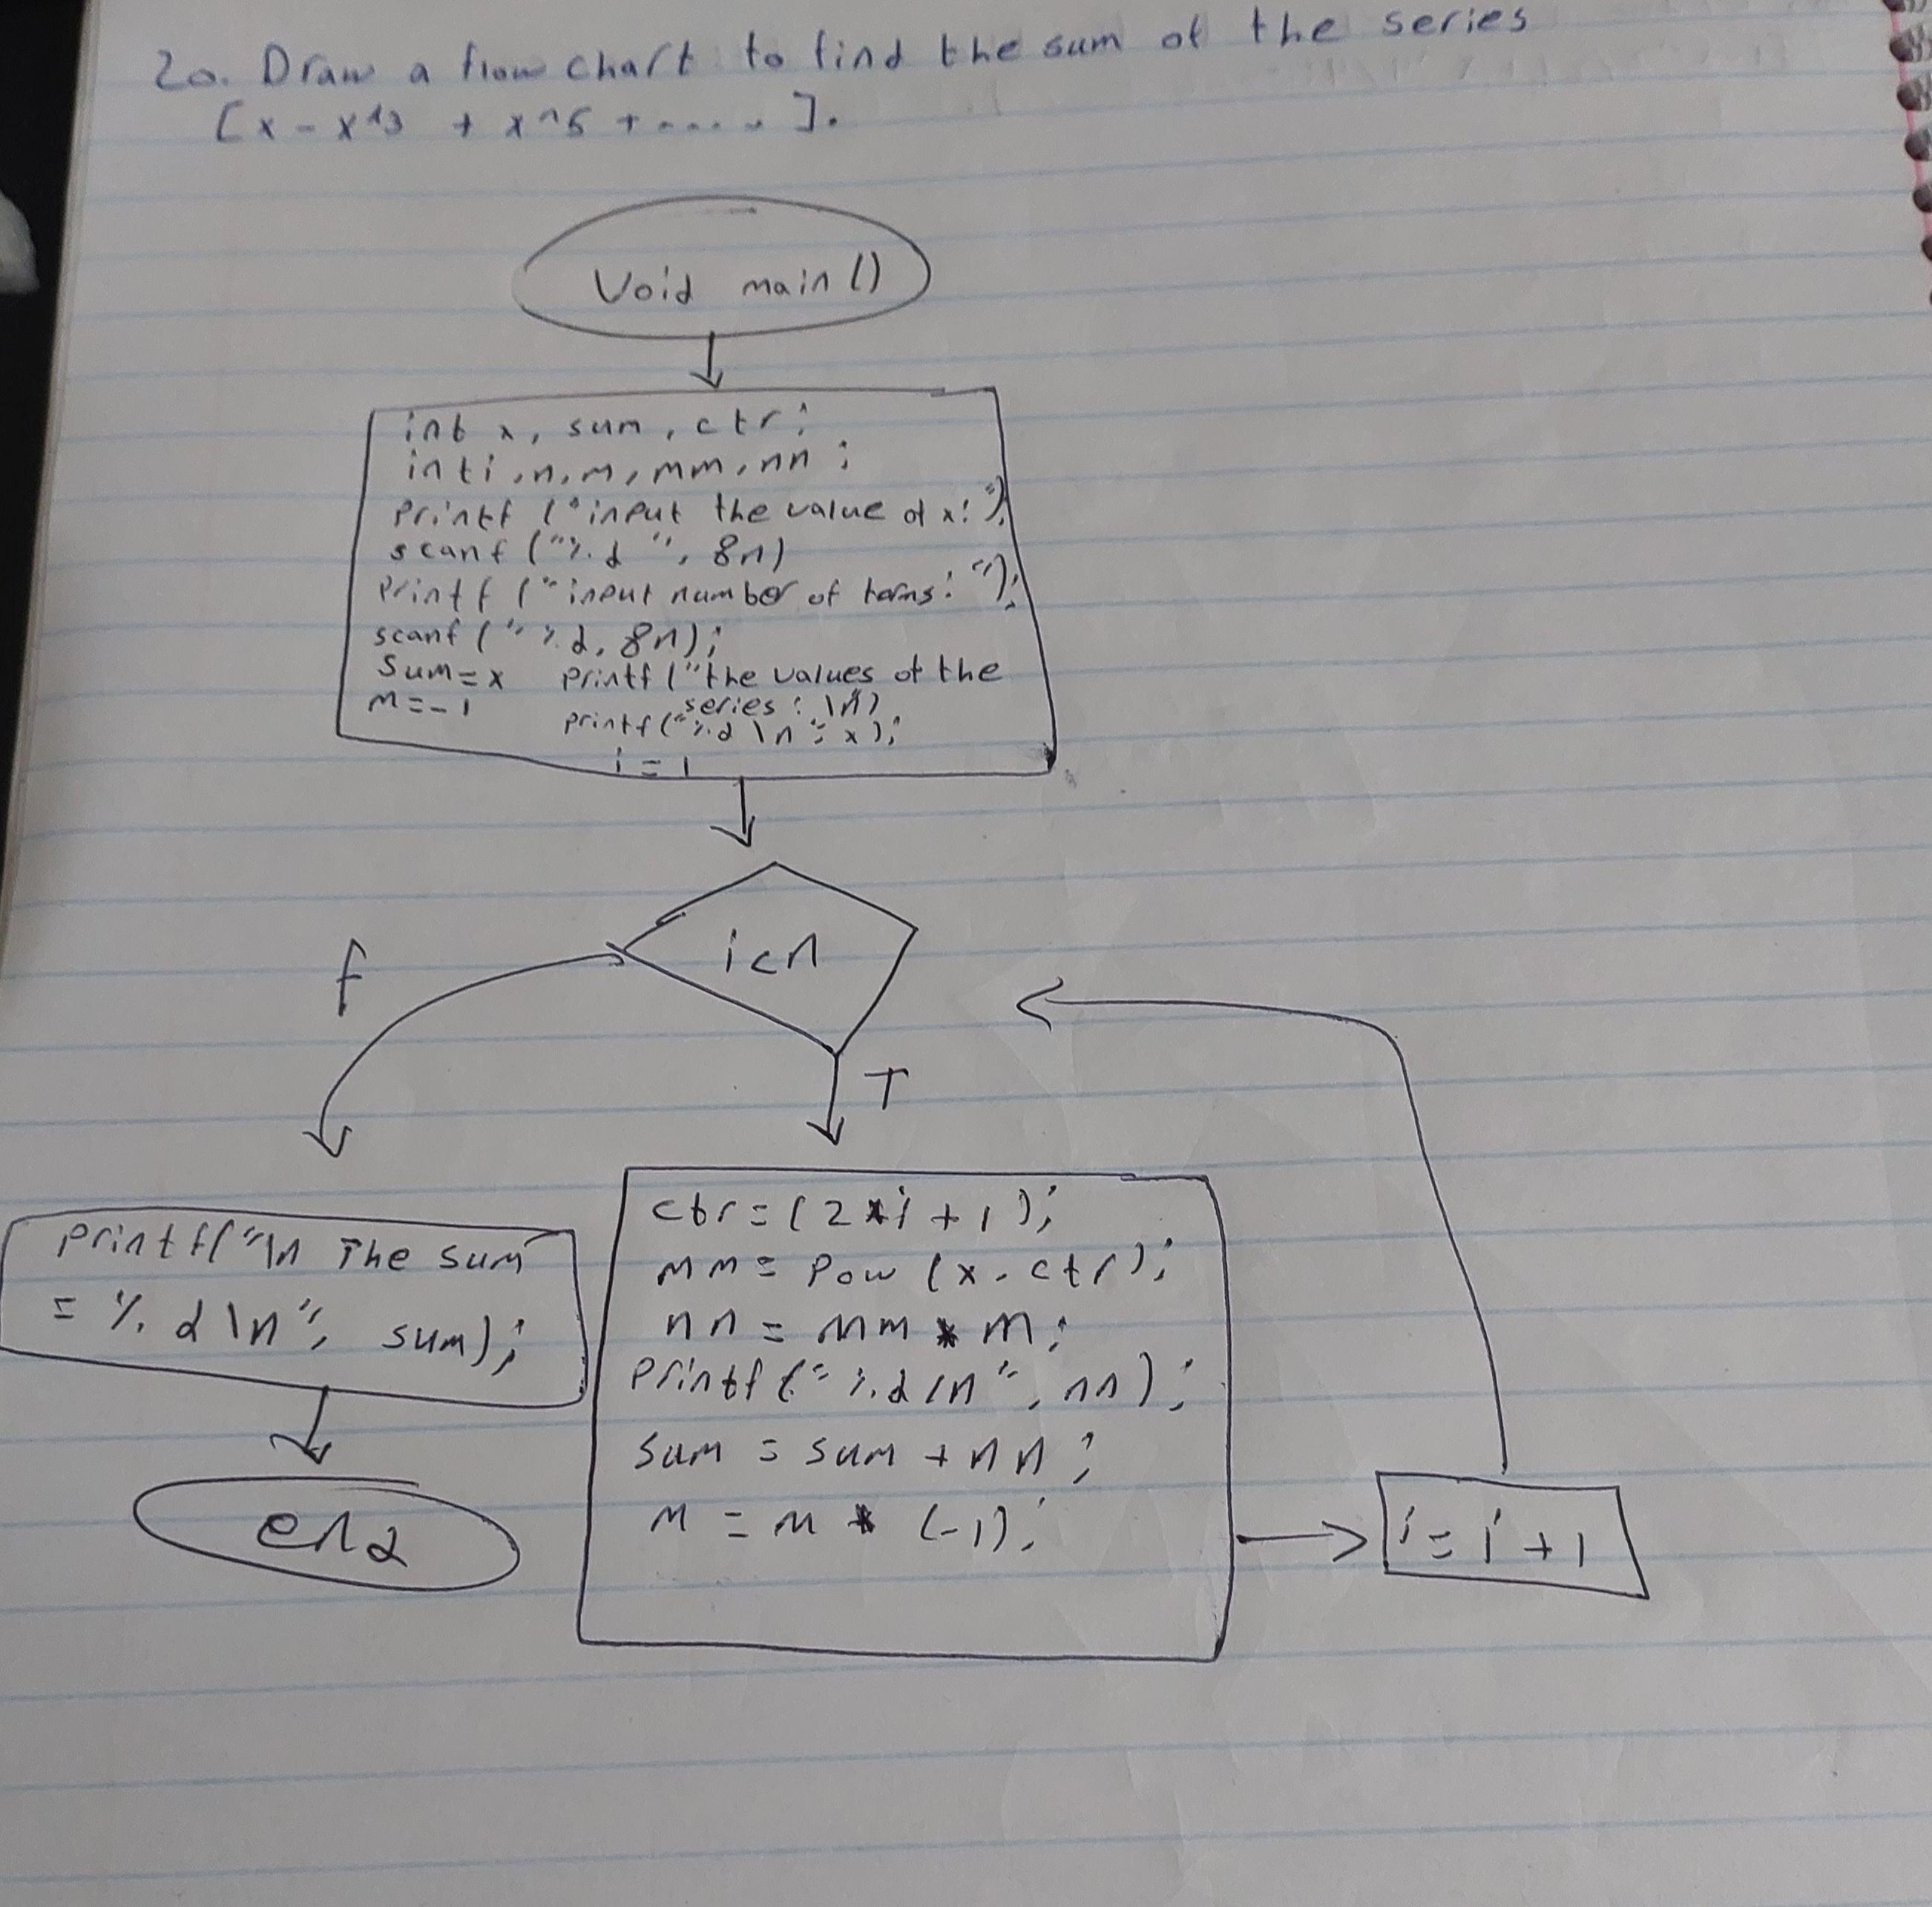 20. Draw a flow chart to find the sum of the series
[x - x^3 + x^5 + ..... ].
Void main()
int x, sum, ctr;
int i, n, m, mm, nn;
printf ("input the value of x: ");
scanf ("%d ", &n)
printf ("input number of terms: ");
scanf (" %d, &n);
sum = x printf ("the values of the
series : \n")
m = -1
printf("%d \n", x);
i = 1
i<n
f
T
printf("\n The sum
= %d \n", sum);
end
ctr = (2*i + 1);
mm = pow (x, ctr);
nn = mm * m;
printf (" %d /n", nn);
sum = sum + nn;
m = m * (-1);
i = i + 1